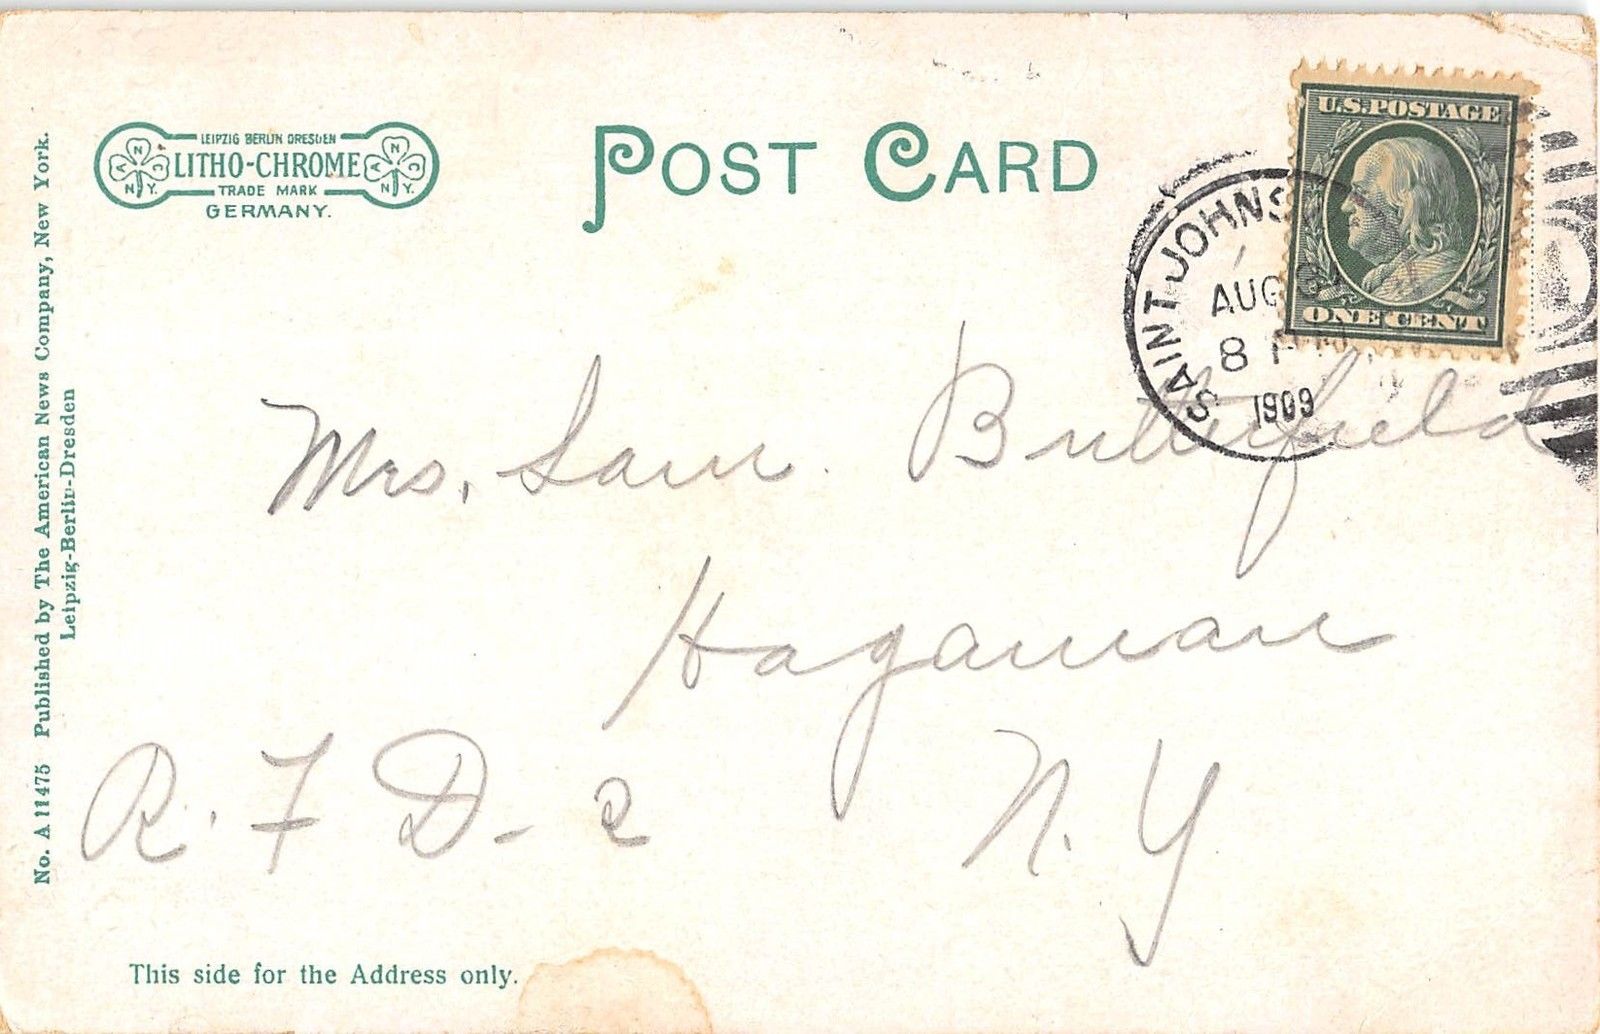 LEIPZIG BERLIN DRESDEN
LITHO-CHROME
TRADE MARK
GERMANY.
A N C N.Y.
A N C N.Y.
POST CARD
U.S. POSTAGE
ONE CENT
SAINT JOHNS
AUG
8
1909
No. A 11475 Published by The American News Company, New York.
Leipzig-Berlin-Dresden
Mrs. Sam. Butterfield
Hagaman
R. F D - 2 N. Y
This side for the Address only.